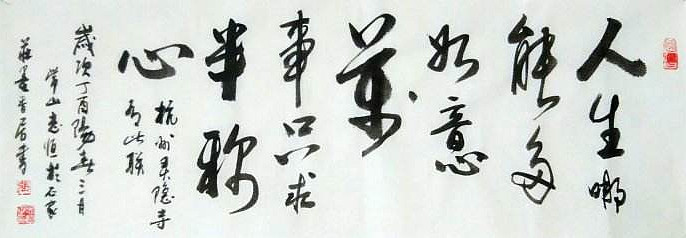 人生哪
能多
如意
萬
事只求
半称
心
杭州灵隐寺
有此联
歲次丁酉陽春三月
常山志恒於石家
莊墨香居書